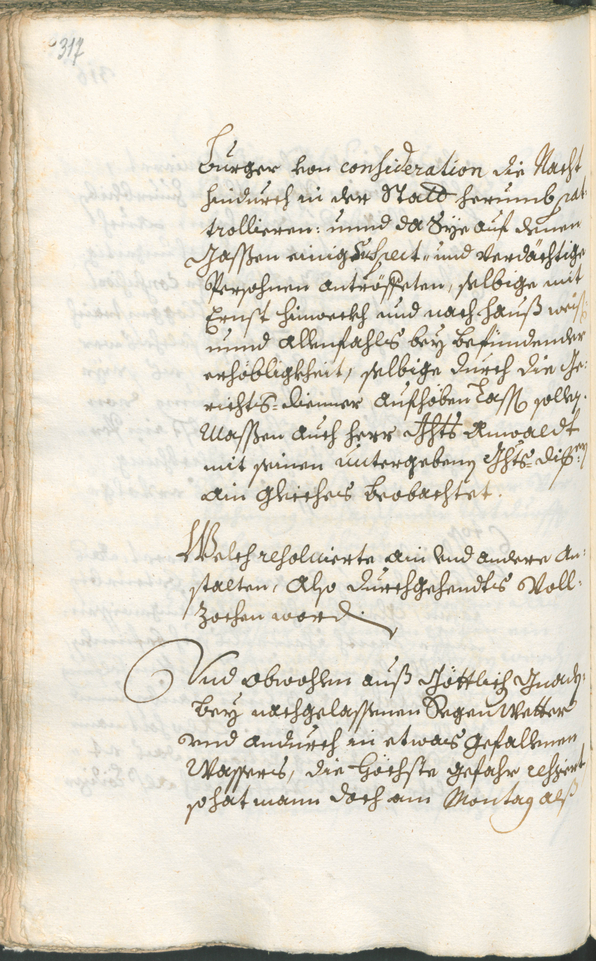 317
Burger von consideration die Nacht
hindurch in der Statt herumb pat
trollieren: unnd da Sye auf denen
Gassen einig Suspect- und verdächtige
Persohnen antröffeten, selbige mit
Ernst hinweckh und nach hauß
unnd allenfahls bey befindender
erhöbligkheit, selbige durch die Ge-
richts-diener aufhöben lassen sollen.
Massen auch herr Ghts Anwaldt
mit seinen untergebenen Ghts-
ain gleiches beobachtet.
Welch resolvierte ain und andere An-
stalten, also durchgehendts Voll-
zochen word.
Und obwohlen auß Göttlich Gnaden
bey nachgelassenen Regen Wetter
und andurch in etwas gefallenen
Wassers, die höchste gefahr
so hat mann doch am Montag alß